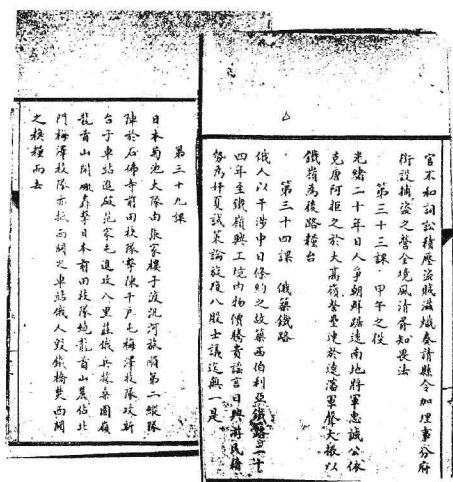 官不和詞訟積壓盜賊滋熾奏請縣令加理事分府
銜設捕盜之營全境風清胥知畏法
第三十三課 甲午之役
光緒二十年日人爭朝鮮踞遼南地將軍忠誠公依
克唐阿拒之於大高嶺營壘連於遼瀋軍聲大振以
鐵嶺為後路糧台
第三十四課 俄築鐵路
俄人以干涉中日條約之故築西伯利亞鐵路二十
四年至鐵嶺興工境內物價騰貴謠言日興游民藉
端為奸夏試策論旋復八股士議迄無一是
第三十九課
日本菊池大隊由張家樓子渡汎河放順第二縱隊
陣於石佛寺前田枝隊擊陳千戶屯梅澤枝隊攻新
台子車站進破范家屯進攻八里莊俄兵據桑園嶺
龍首山開礮轟擊日本前田枝隊繞龍首山農佔北
門梅澤枝隊亦抵西關之車站俄人毀鐵橋焚西關
之積糧而去